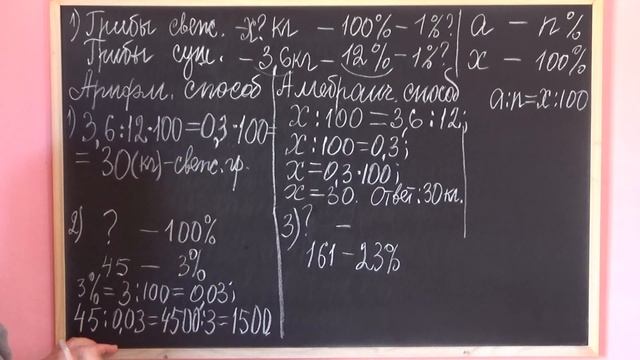 1) Грибы свеж. - x? кг - 100% - 1%?
Грибы суш. - 3,6 кг - 12% - 1%?
a - n%
x - 100%
a:n=x:100
Арифм. способ
1) 3,6:12·100=0,3·100=
= 30(кг)-свеж. гр.
2) ? - 100%
45 - 3%
3%=3:100=0,03;
45:0,03=4500:3=1500
Алгебраич. способ
x:100=3,6:12;
x:100=0,3;
x=0,3·100;
x=30. Ответ: 30 кг.
3) ? -
161-23%